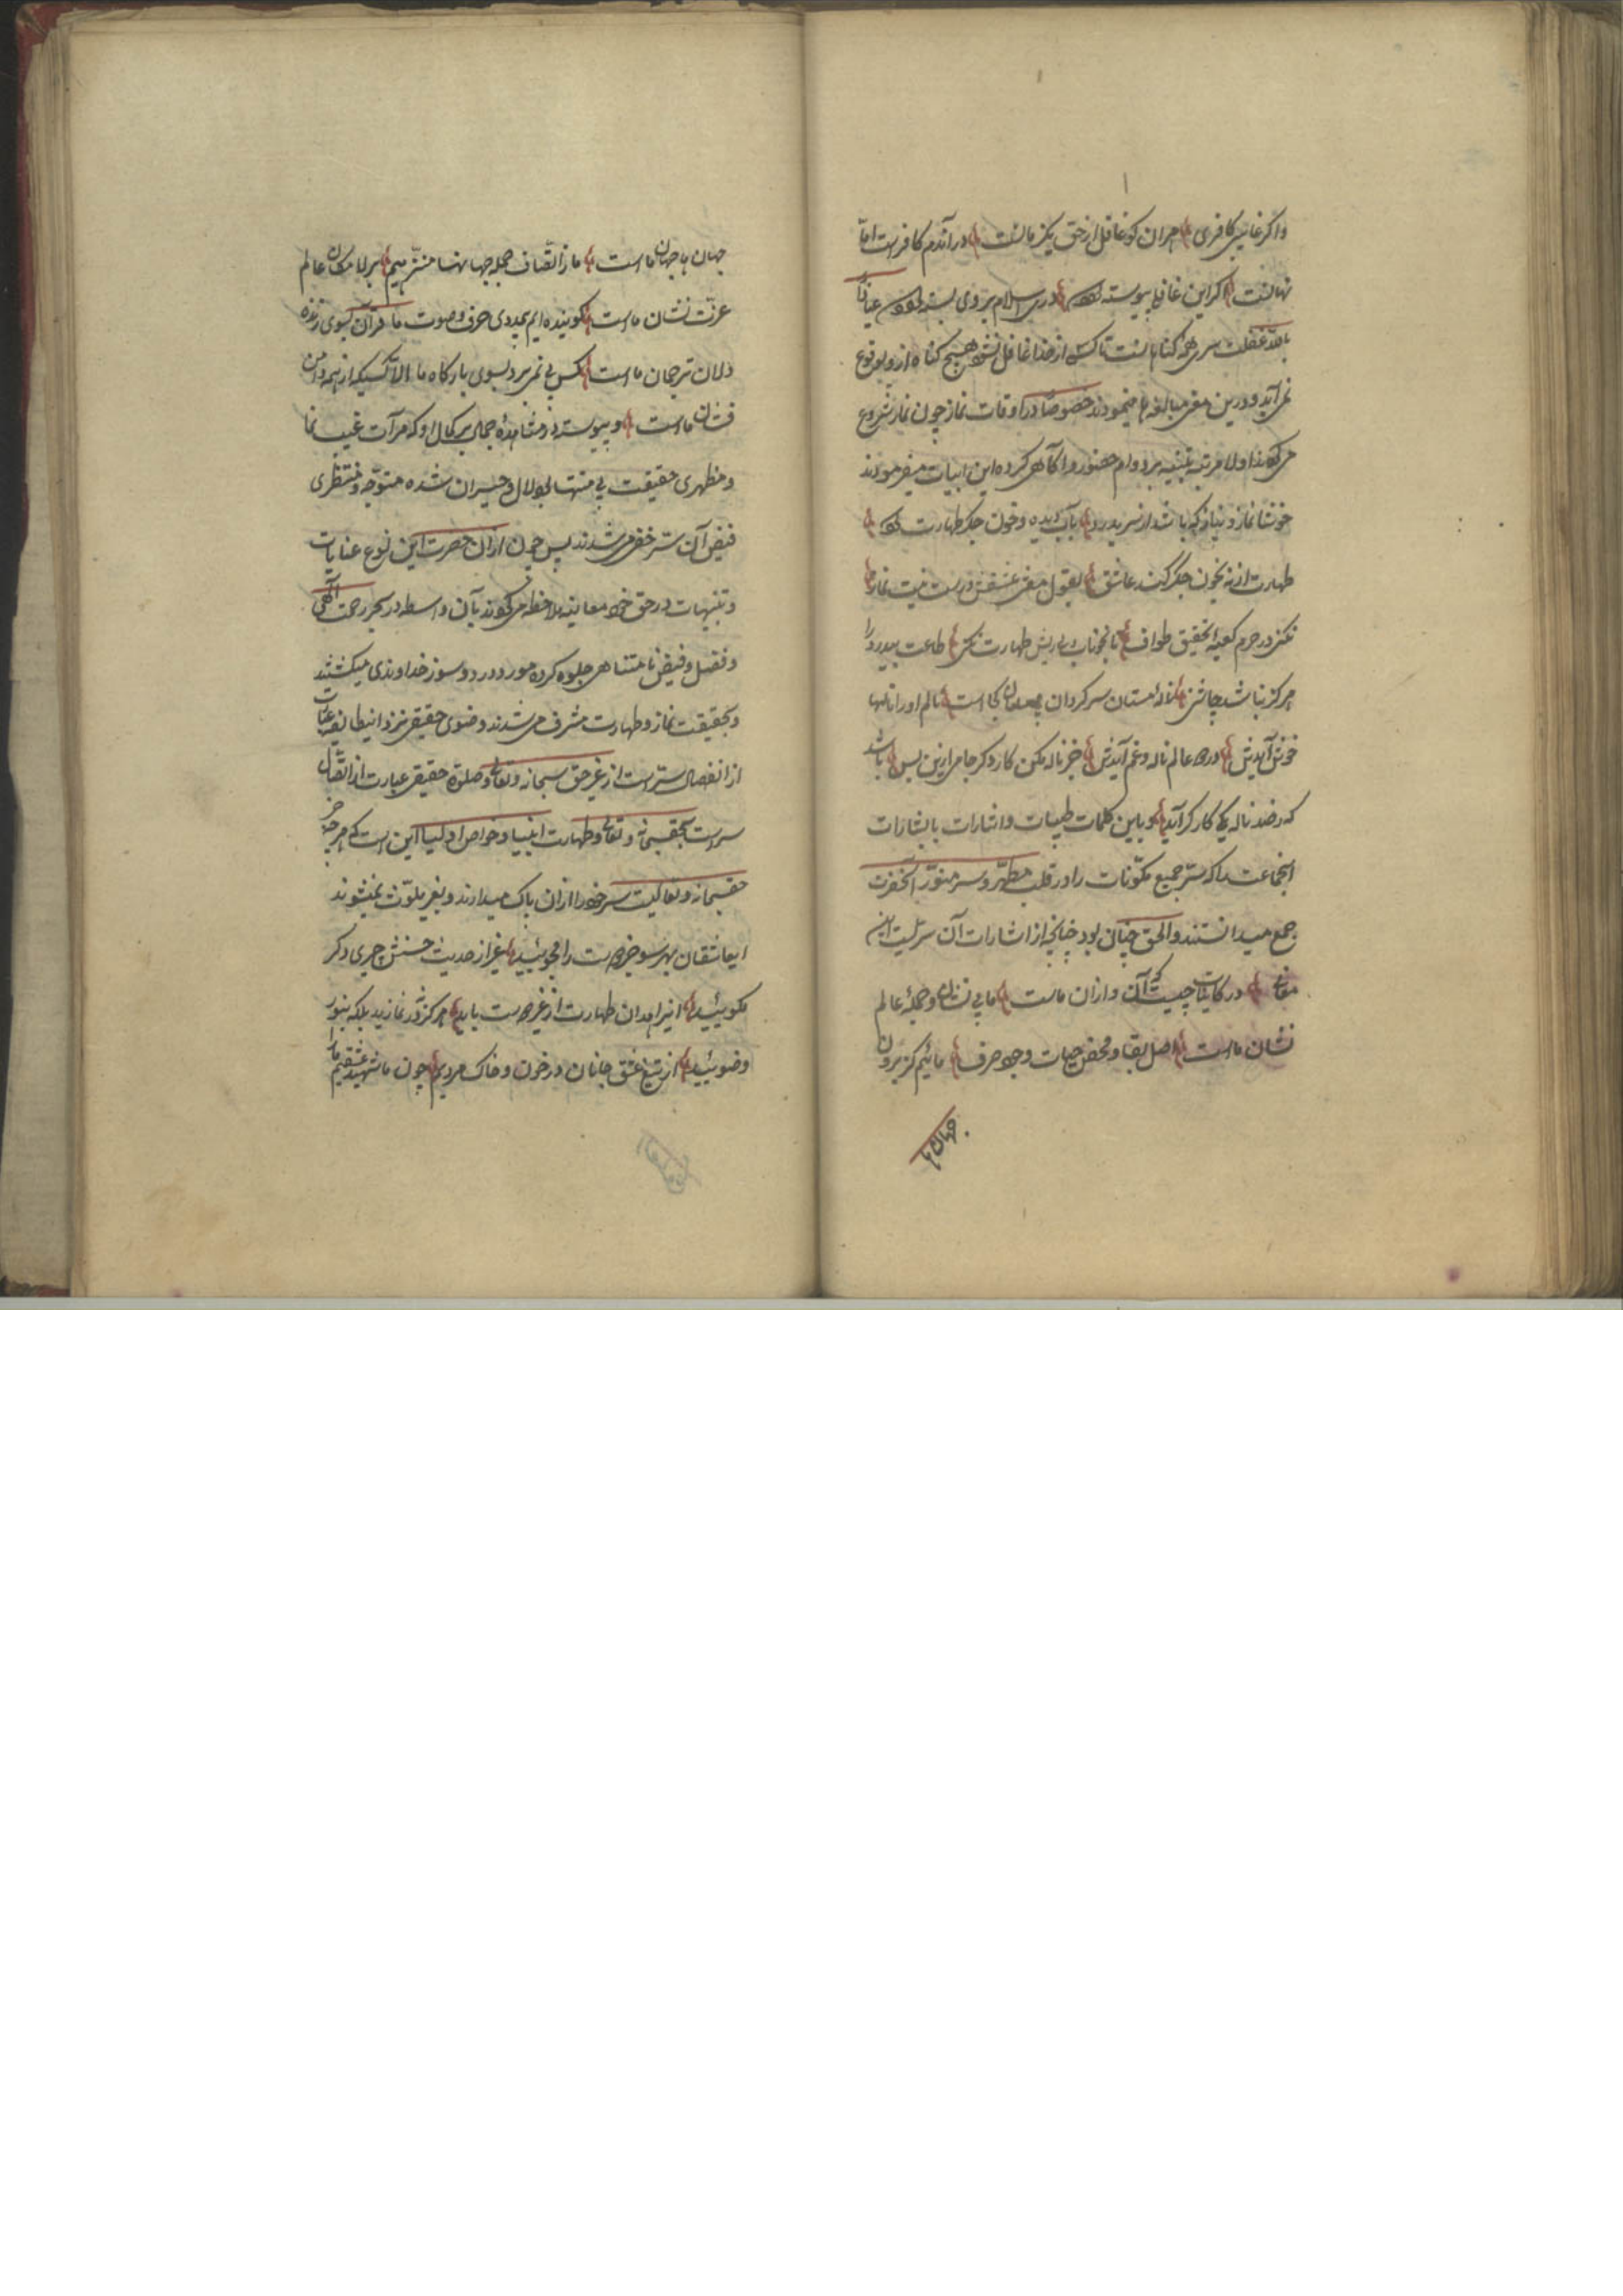 واکر غایبی کافری هر آن کو غافل از حق یکزمانست در آندم کافرست اما
نهانست اکر این غافلی پیوسته بودی در اسلام بروی بسته بودی عیاذا
بالله غفلت سر همه کناهانست تا کسی از خدا غافل نشود هیچ کناه ازو بوقوع
نمی آید و درین معنی مبالغه‌ها مینمودند خصوصا در اوقات نماز چون نماز شروع
میکردند اولا مرتبه تنبیه بر دوام حضور و آکاهی کرده این ابیات میفرمودند
خوشا نماز و نیاز کسی که باشد از سر درد بآب دیده و خون جکر طهارت کرد
طهارت ار نه بخون جکر کند عاشق بقول مفتی عشقش درست نیست نماز تا
نکنی در حرم کعبه تحقیق طواف تا بخوناب طهارت نکنی طاعت بیدرد را
هرکز نباشد چاشنی ناله مستان سرکردان کجاست نالم او را نالها
خوش آیدش در دو عالم ناله و غم آیدش جز ناله مکن کار دکر جامی ازین پس باشد
که ز صد ناله یکی کارکر آید و باین کلمات طیبات و اشارات با بشارات
انجماعت را که ستر جمیع مکونات را در قلب مطهر و سر منور آنحضرت
جمع میدانستند والحق چنان بود چنانچه از اشارات آن سریست این
معانی در کاینات چیست که آن و از آن ماست ما بی نشان و جمله عالم
نشان ماست اصل بقا و محض حیات و وجود صرف مائیم کز برون
جهان ها
جهان ها جهان ماست ما ز اتصاف جمله جهانها منزهیم بر لا مکان عالم
عزت نشان ماست کوینده ایم بیمددی حرف و صوت ما قرآن بسوی زنده
دلان ترجمان ماست کس پی نمی برد بسوی بارکاه ما الا کسیکه از همه دامن
فشان ماست و پیوسته در مشاهده جمال بر کمال او که مرآت غیب نما
و مظهری حقیقت بی منتها بود لال و حیران شده متوجه و منتظری
فیض آن ستر خفی میشدند پس چون از آن حضرت این نوع عنایات
و تنبیهات در حق خود معاینه ملاحظه میکردند بآن واسطه در بحر رحمت الهی
و فضل و فیض نا متناهی جلوه کرده مورد درد و سوز خداوندی میکشتند
و بحقیقت نماز و طهارت مشرف میشدند وضوی حقیقی نزد اینطایفه عبارت
از انفصال سرست از غیر حق سبحانه و تعالی و صلوة حقیقی عبارت از اتصال
سرست بحق سبحانه و تعالی و طهارت انبیا و خواص اولیا این است که هر چه جز
حق سبحانه و تعالیست سر خود را از آن پاک میدارند و بغیر ملوث نمیشوند
ایعاشقان بهر سو جز دوست را مجوئید غیر از حدیث حسنش چیزی دکر
مکوئید ای زاهدان طهارت از غیر دوست باید هرکز در نمازید بلکه بنور
وضوئید از تیغ عشق جانان در خون و خاک مردیم چون ما شهید عشقیم ما را